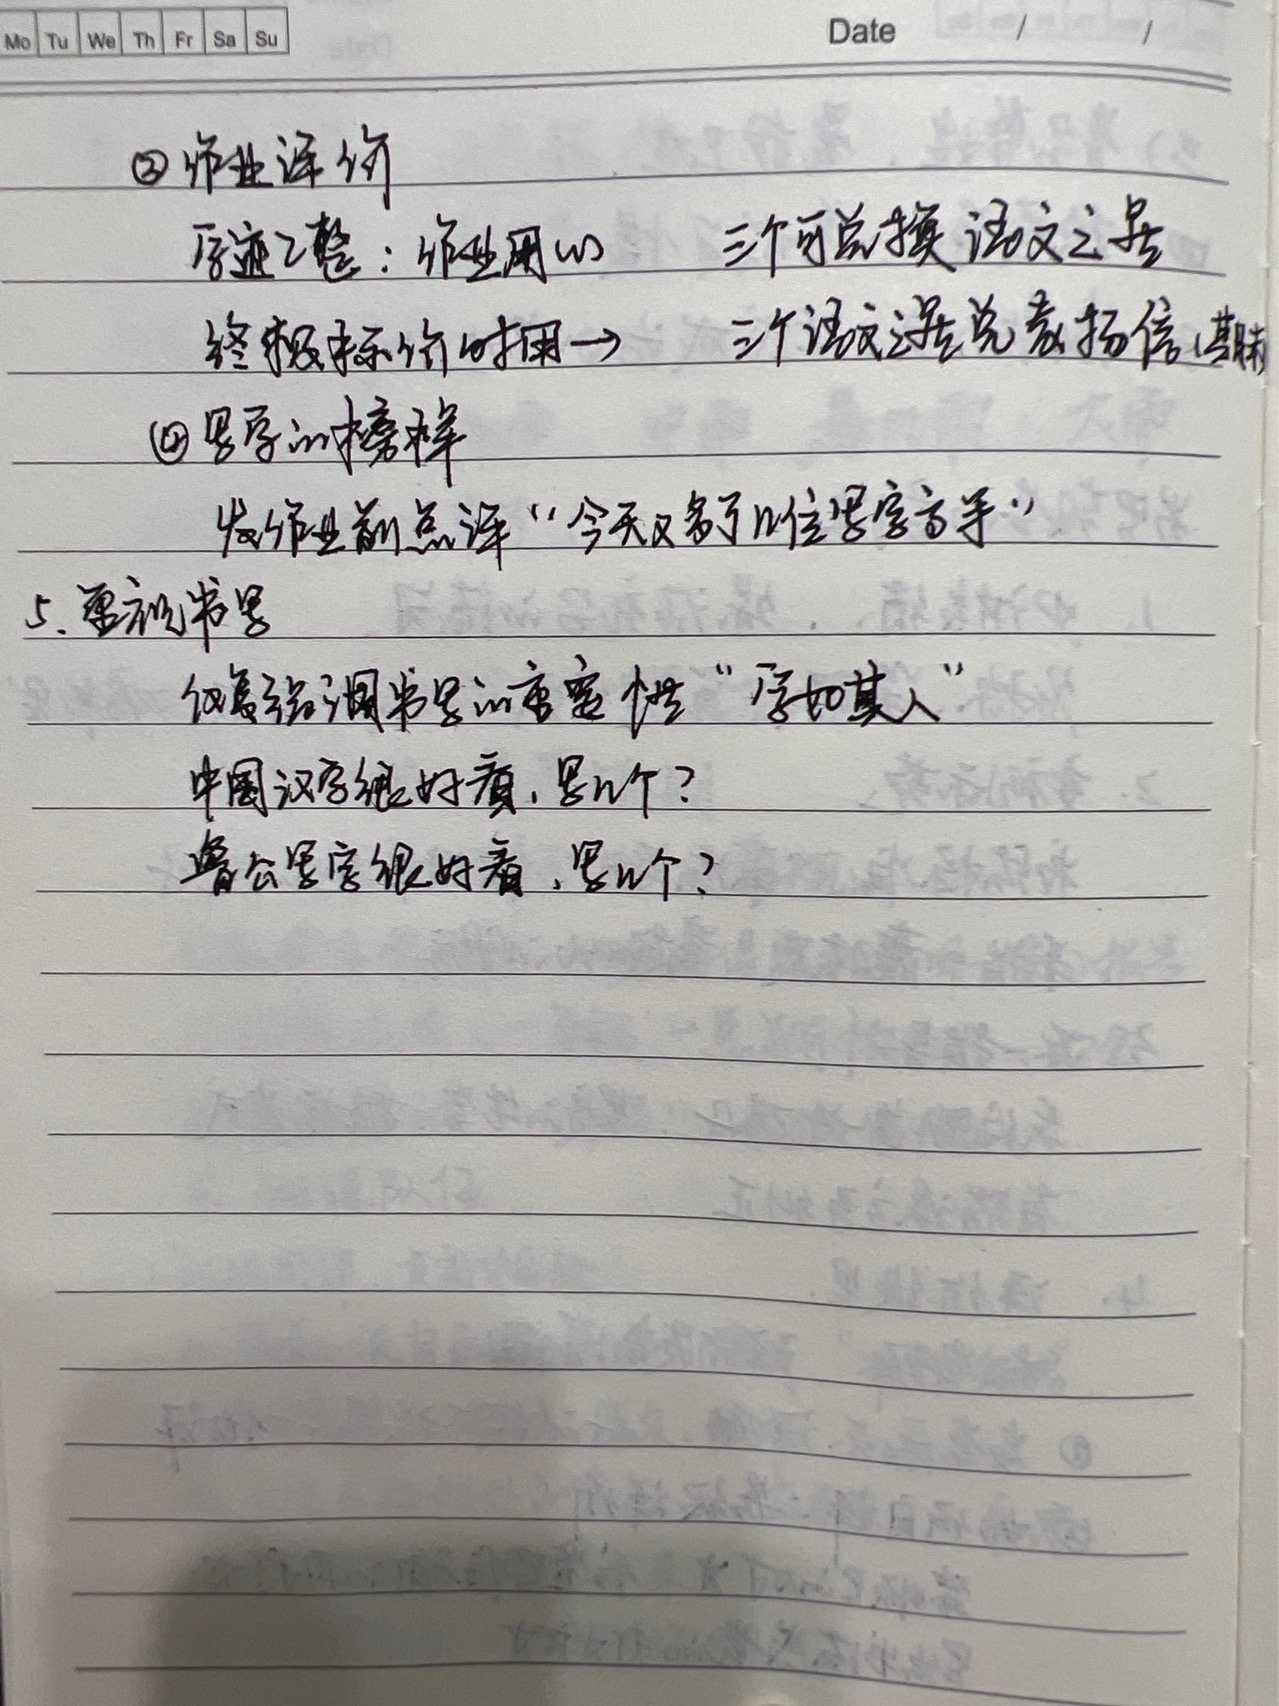 Mo Tu We Th Fr Sa Su
Date / /
③ 作业评价
字迹工整：作业用 三个可兑换语文之星
终极标价时用→ 三个语文之星兑表扬信(期末
④ 写字的榜样
发作业前点评“今天又多了几位写字高手”
5. 重视书写
反复强调书写的重要性“字如其人”
中国汉字很好看，写几个？
鲁公写字很好看，写几个？